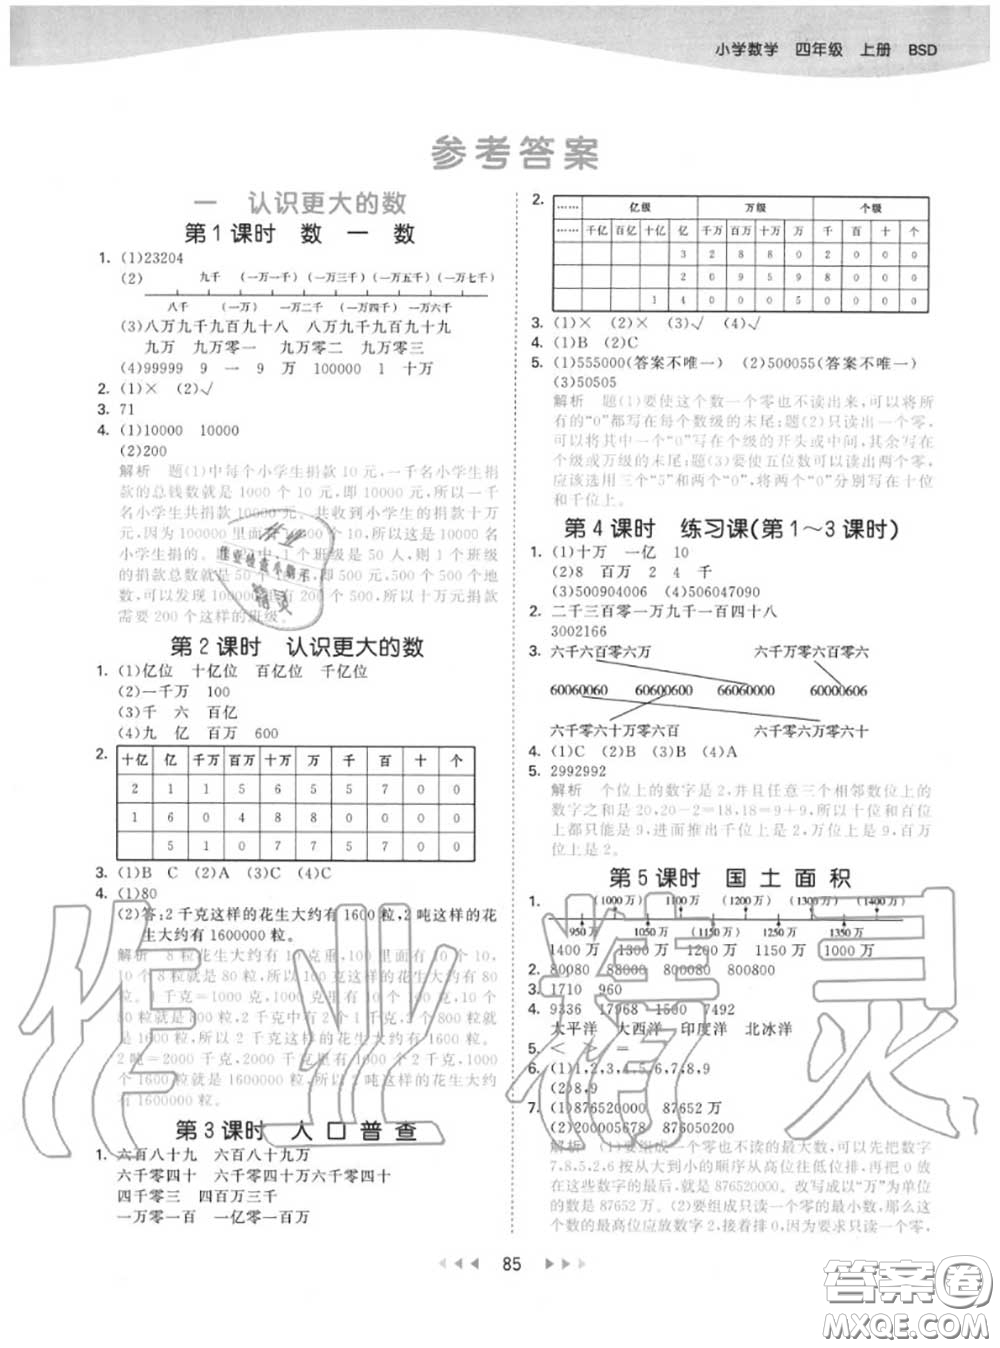 小学数学 四年级 上册 BSD
参考答案
一 认识更大的数
第1课时 数一数
1. (1)23204
(2) 九千 (一万一千) (一万三千) (一万五千) (一万七千)
八千 (一万) 一万二千 (一万四千) 一万六千
(3)八万九千九百九十八 八万九千九百九十九
九万 九万零一 九万零二 九万零三
(4)99999 9 一 9 万 100000 1 十万
2. (1)× (2)√
3. 71
4. (1)10000 10000
(2)200
解析 题(1)中每个小学生捐款10元,一千名小学生捐
款的总钱数就是1000个10元,即10000元,所以一千
名小学生共捐款10000元。共收到小学生的捐款十万
元,因为100000里面有10个10000,所以这是10000名
小学生捐的。题(2)中,1个班级是50人,则1个班级
的捐款总数就是500元,即5个100元,500元500个地
数,可以发现100000里有200个500,所以十万元捐
需要200个这样的班级。
第2课时 认识更大的数
1. (1)亿位 十亿位 百亿位 千亿位
(2)一千万 100
(3)千 六 百亿
(4)九 亿 百万 600
2. 十亿 亿 千万 百万 十万 万 千 百 十 个
2 1 1 5 6 5 5 7 0 0
1 6 0 4 8 8 0 0 0 0
5 1 0 7 7 0 0 0
3. (1)B C (2)A (3)C (4)C
4. (1)80
(2)答:2千克这样的花生大约有1600粒,2吨这样的花
生大约有1600000粒。
解析 8粒花生大约有10克重,100里面有10个
10,10个8粒就是80粒,所以100克这样的花生大约有80
粒。1千克=1000克,1000里面有10个100,10个
80粒就是800粒,2千克中有2个1千克,2个800粒
就是1600粒,所以2千克这样的花生大约有1600粒。
2吨=2000千克,2000千克里面有1000个2千克,1000
个1600粒是1600000粒,所以2吨这样的花生大约
有1600000粒。
第3课时 人口普查
1. 六百八十九 六百八十九万
六千零四十 六千零四十万六千零四十
四千零三 四百万三千
一万零一百 一亿零一百万
2. …… 亿级 万级 个级
…… 千亿 百亿 十亿 亿 千万 百万 十万 万 千 百 十 个
3 2 8 8 0 2 0 0 0
2 0 9 5 9 8 0 0 0
1 4 0 0 0 5 0 0 0 0
3. (1)× (2)× (3)√ (4)√
4. (1)B (2)C
5. (1)555000(答案不唯一) (2)500055(答案不唯一)
(3)50505
解析 题(1)要使这个数一个零也不读出来,可以将所
有的“0”都写在每个数级的末尾;题(2)只读出一个零,
可以将其中一个“0”写在级的开头或中间,其余写在
个级或万级的末尾;题(3)要使五位数可以读出两个零,
应该选用三个“5”和两个“0”,将两个“0”分别写在十位
和千位上。
第4课时 练习课(第1～3课时)
1. (1)十万 一亿 10
(2)8 百万 2 4 千
(3)500904006 (4)506047090
2. 二千三百零一万九千一百四十八
3002166
3. 六千六百零六万 六千万零六百零六
60060060 60600600 66060000 60000606
六千零六十万零六百 六千零六万零六十
4. (1)C (2)B (3)B (4)A
5. 2992992
解析 个位上的数字是2,并且任意三个相邻数位上的
数字之和是20,20-2=18,18=9+9,所以十位和百位
上都只能是9,进而推出千位上是2,万位上是9,百万
位上是2。
第5课时 国土面积
1. (1000万) 1100万 (1200万) (1300万) (1400万)
950万 1050万 (1150万) 1250万 1350万
1400万 1300万 1200万 1150万 1000万
2. 80080 88000 800080 800800
3. 1710 960
4. 9336 17968 1500 7492
太平洋 大西洋 印度洋 北冰洋
5. < > =
6. (1)1,2,3,4,5,6,7,8,9
(2)8,9
7. (1)876520000 87652万
(2)200005678
解析 (1)要组成一个零也不读的最大数,可以先把数字
7,8,5,2,6按从大到小的顺序从高位排起,再把4个0
在这些数字的最后,就是876520000。改写成以“万”为单位
的数是87652万。(2)要组成只读一个零的最小数,那么这
个数的最高位应放数字2,接着排0,因为要求只读一个零,
85
作业精灵
作业检查小助手
精灵
答案圈
MXQE.COM